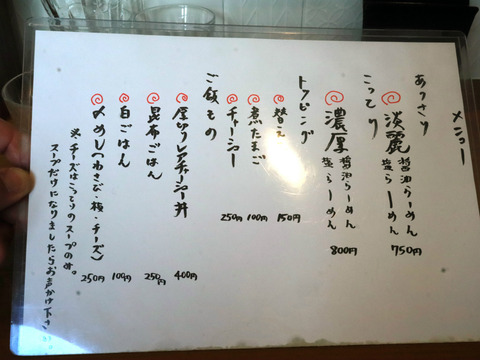 メニュー
あっさり
淡麗 醤油らーめん
塩らーめん 750円
こってり
濃厚 醤油らーめん
塩らーめん 800円
トッピング
替え玉 150円
煮たまご 100円
チャーシュー 250円
ご飯もの
厚切りレアチャーシュー丼 400円
昆布ごはん 250円
白ごはん 100円
〆めし(わさび・梅・チーズ) 250円
※チーズはこってりのスープのみ。
スープだけになりましたらお声かけ下さい